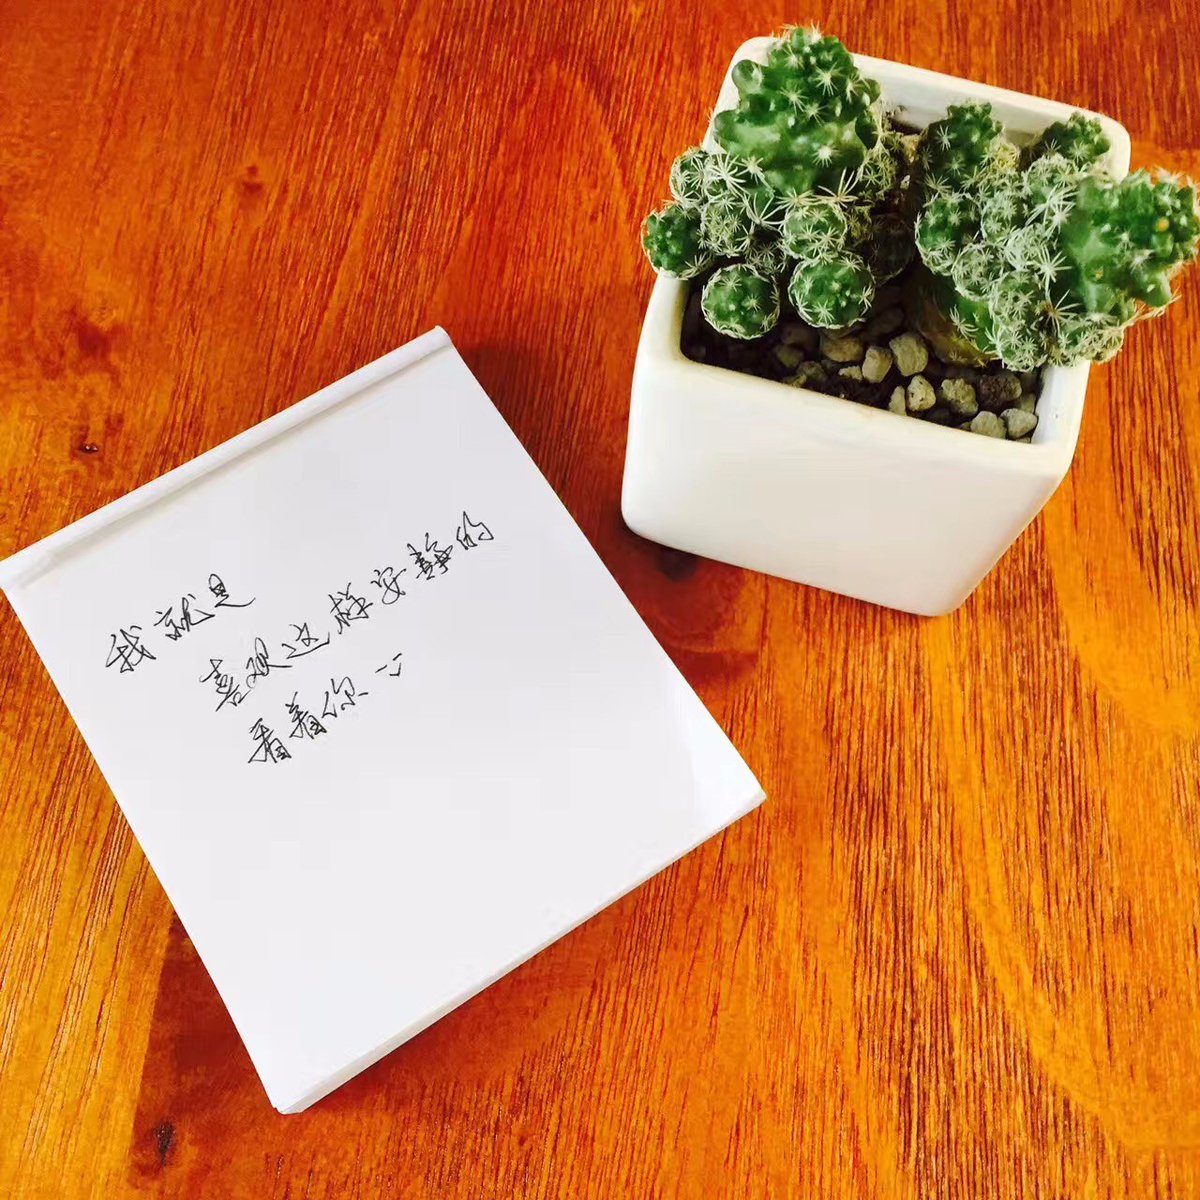 我就是
喜观这样安静的
看着你